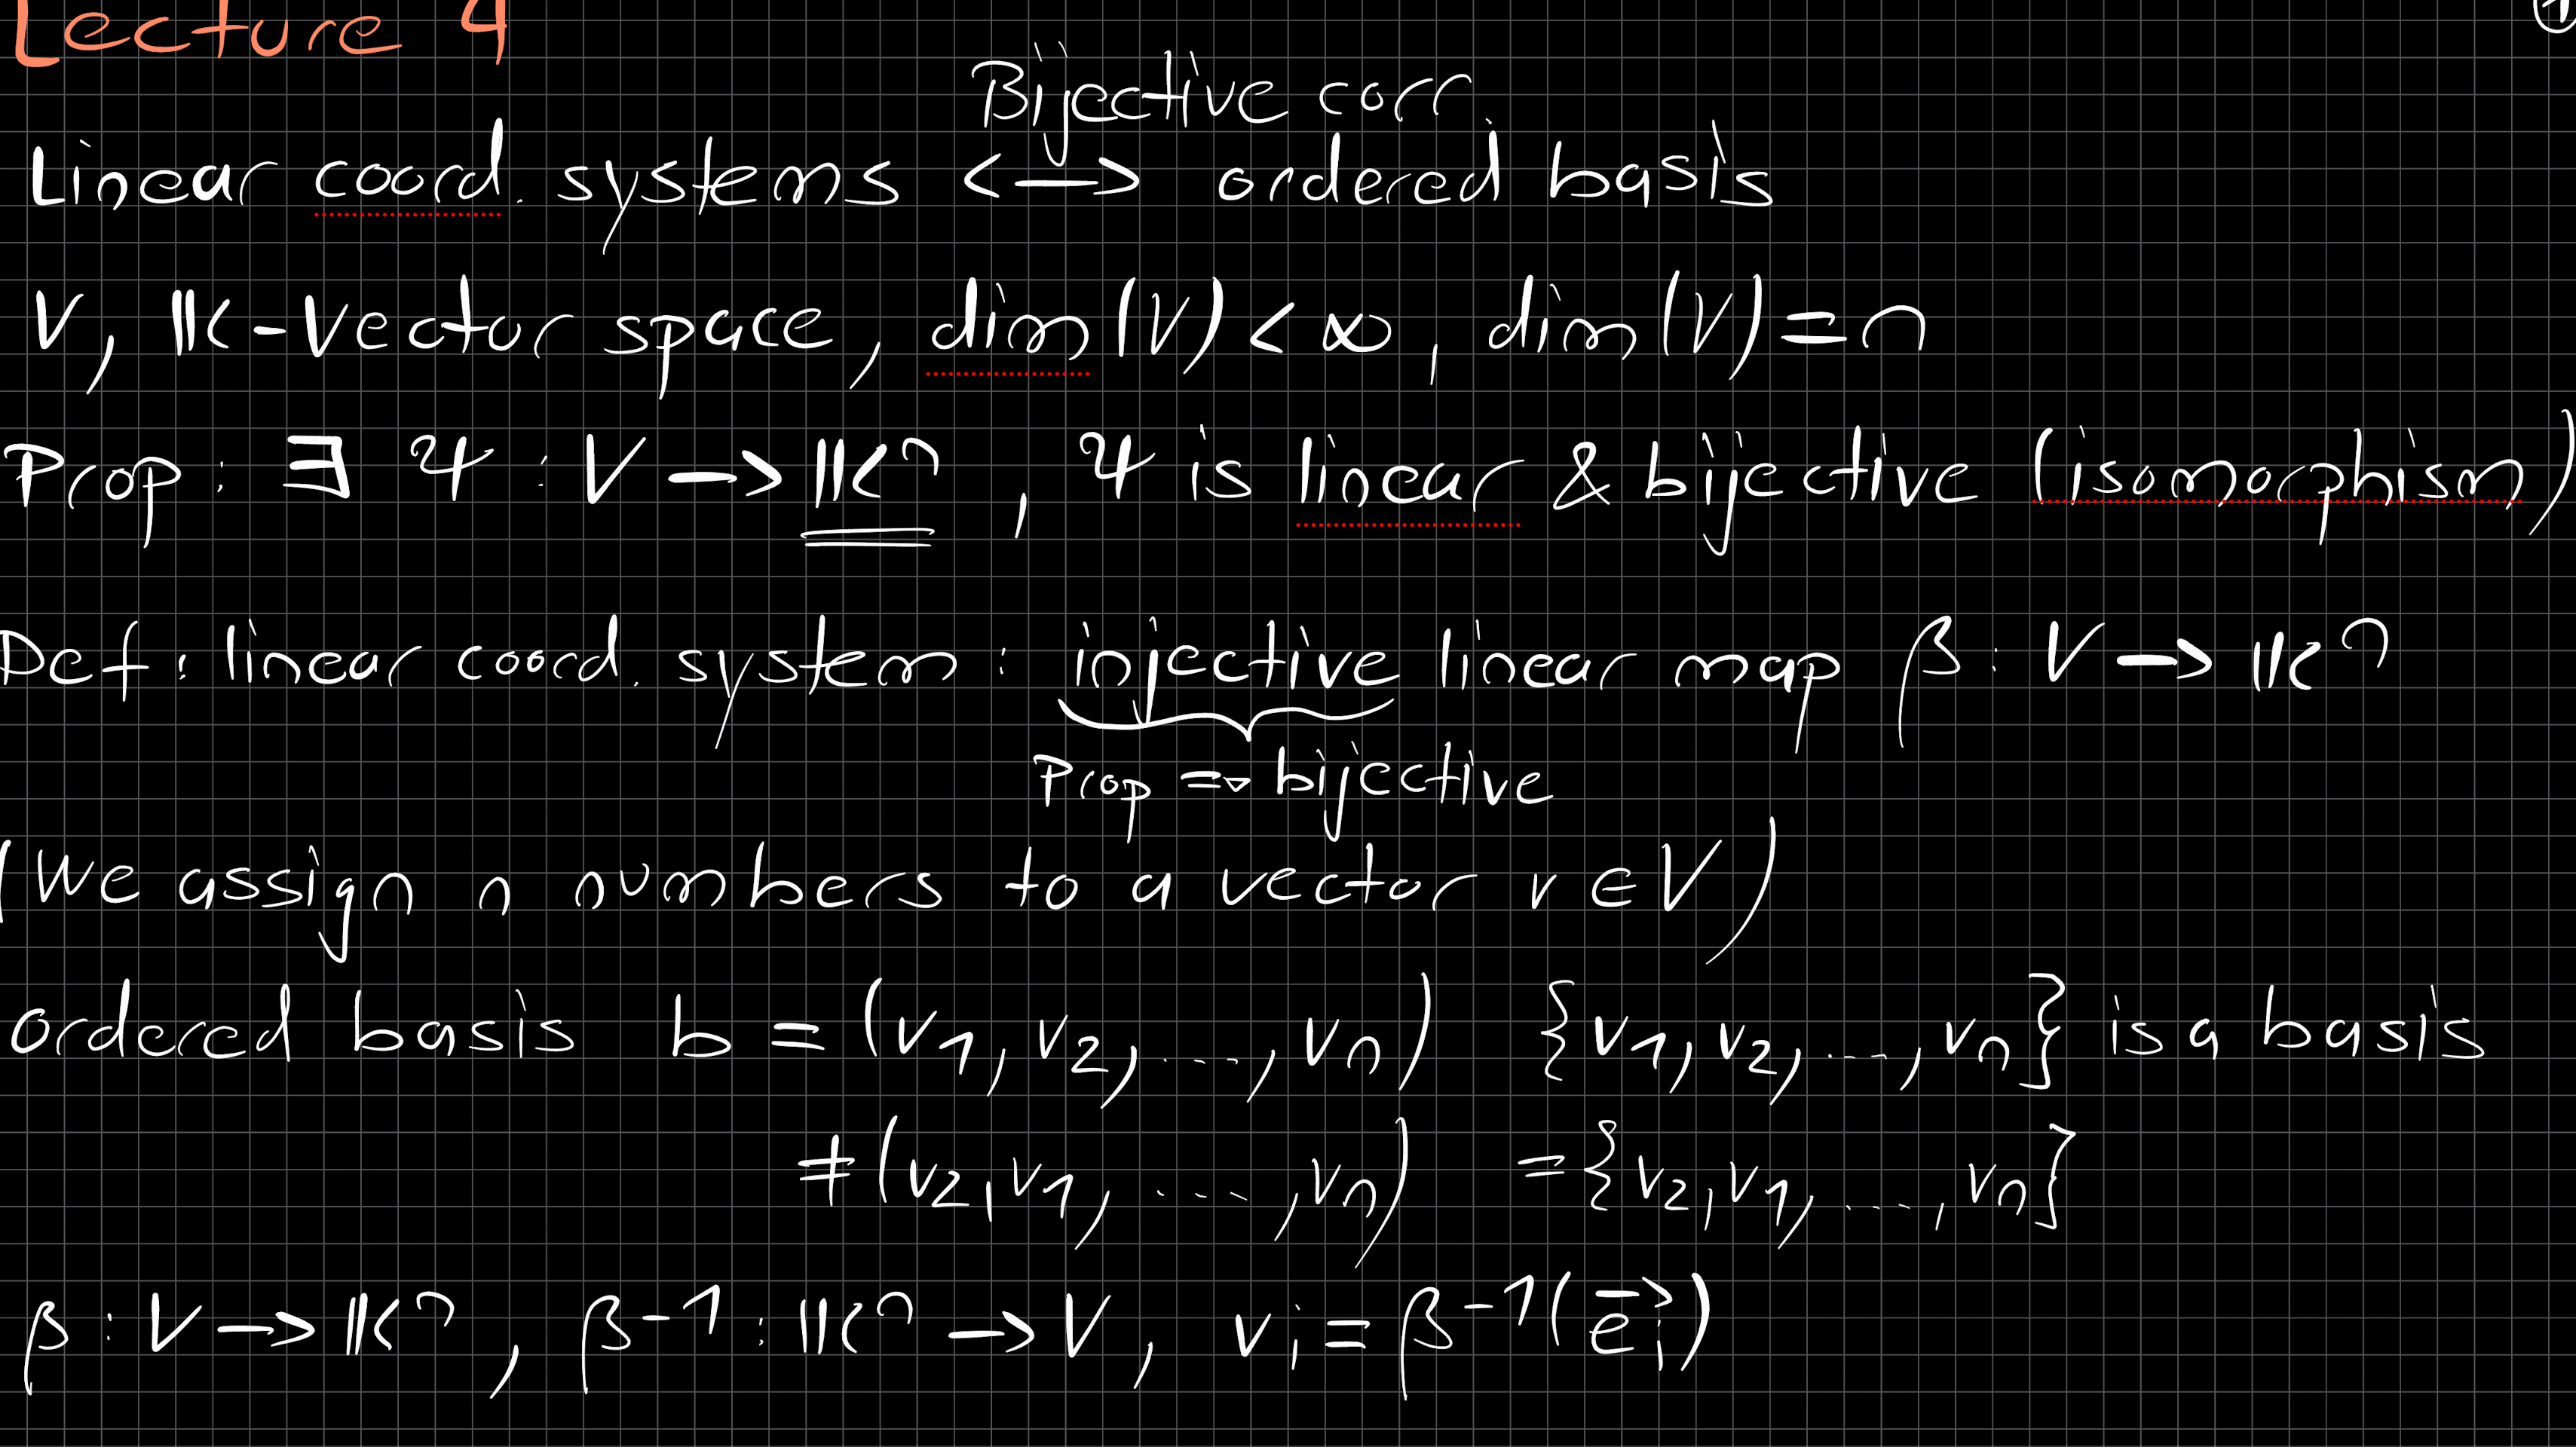 Lecture 4
①
Bijective corr.
Linear coord. systems <—> ordered basis
V, 𝕂-vector space, dim(V) < ∞, dim(V) = n
Prop: ∃ Ψ : V → 𝕂ⁿ, Ψ is linear & bijective (isomorphism)
Def: linear coord. system: injective linear map β: V → 𝕂ⁿ
Prop ⇒ bijective
(We assign n numbers to a vector v ∈ V)
ordered basis b = (v₁, v₂, ..., vₙ) {v₁, v₂, ..., vₙ} is a basis
≠ (v₂, v₁, ..., vₙ) = {v₂, v₁, ..., vₙ}
β: V → 𝕂ⁿ, β⁻¹: 𝕂ⁿ → V, vᵢ = β⁻¹(e⃗ᵢ)